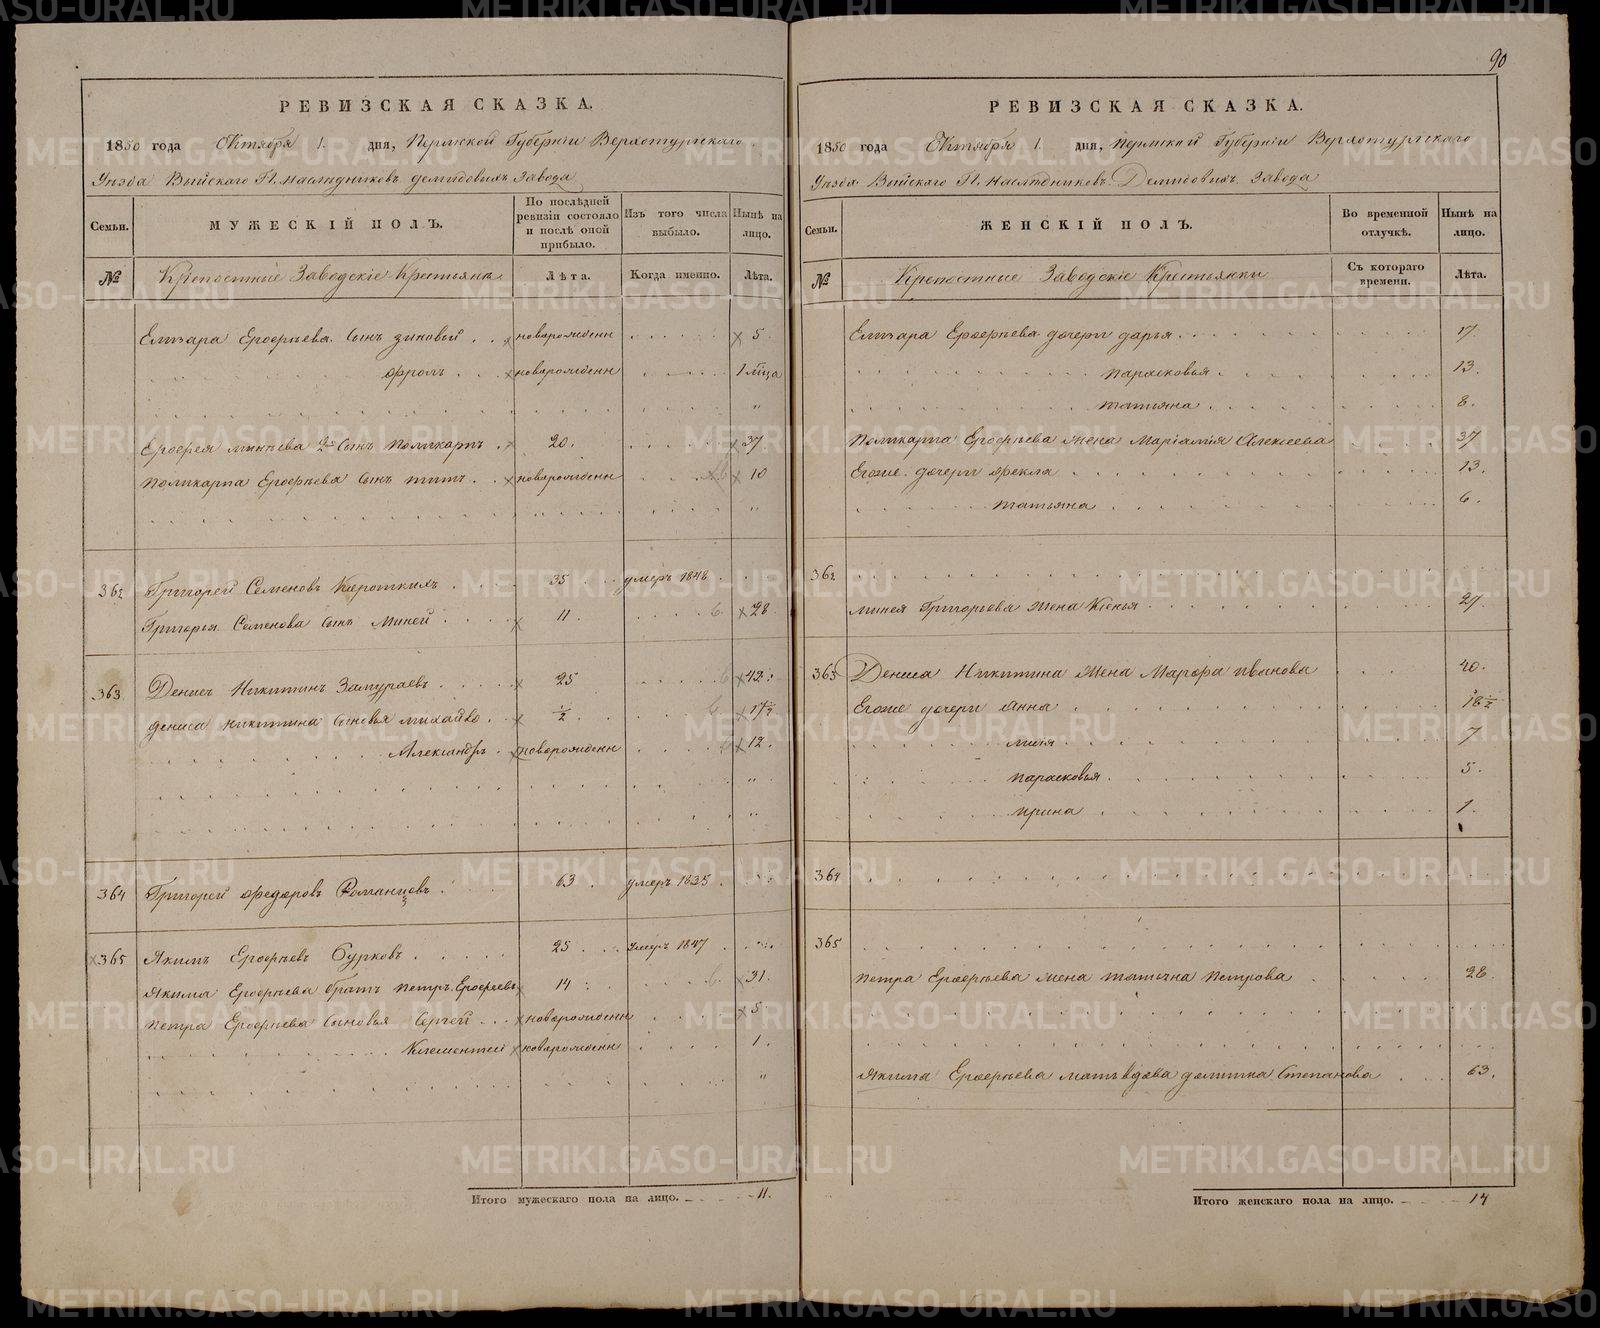 РЕВИЗСКАЯ СКАЗКА.
1850 года Октября 1. дня, Пермской Губерніи Верхотурскаго
Уѣзда Выйскаго Гг. Наслѣдниковъ Демидовыхъ Завода
Семьи. МУЖЕСКІЙ ПОЛЪ. По послѣдней ревизіи состояло и послѣ оной прибыло. Изъ того числа выбыло. Нынѣ на лицо.
№ Крепостные Заводскіе Крестьяна Лѣта. Когда именно. Лѣта.
Елизара Ерофеѣева Сынъ Зиновый новорожденн 5
Фролъ новорожденн 1 мца
Ерофея Минѣева 2й Сынъ Поликарпъ 20. 37
Поликарпа Ерофеѣева Сынъ Титъ новорожденн 10
362 Григорей Семеновъ Короткихъ 35 умеръ 1848
Григорья Семенова Сынъ Миней 11 28
363 Денисъ Никитинъ Замураевъ 25 42
Дениса Никитина Сыновья Михайло 1/2 17 1/2
Александръ новорожденн 12.
364 Григорей Федоровъ Романцовъ 63 умеръ 1835
365 Якимъ Ерофеѣевъ Бурковъ 25 умеръ 1847
Якима Ерофеѣева братъ Петръ Ерофеевъ 14 31.
Петра Ерофеѣева Сыновья Сергей новорожденн 5
Клементей новорожденн 1.
Итого мужескаго пола на лицо. 11.
90
РЕВИЗСКАЯ СКАЗКА.
1850 года Октября 1. дня, Пермской Губерніи Верхотурскаго
Уѣзда Выйскаго Гг. Наслѣдниковъ Демидовыхъ Завода
Семьи. ЖЕНСКІЙ ПОЛЪ. Во временной отлучкѣ. Нынѣ на лицо.
№ Крепостные Заводскіе Крестьянки Съ котораго времени. Лѣта.
Елизара Ерофеѣева дочери Дарья 17
Парасковья 13.
Татьяна 8.
Поликарпа Ерофеѣева Жена Маріамія Алексеева 37
Егоже дочери Фекла 13.
Татьяна 6.
362
Минея Григорьева Жена Ксенья 27.
363 Дениса Никитина Жена Марфа Иванова 40.
Егоже дочери Анна 18 1/2
7
Парасковья 5.
Ирина 1.
364
365
Петра Ерофеѣева Жена Татьяна Петрова 28
Якима Ерофеѣева мать вдова Степанова 63.
Итого женскаго пола на лицо. 14
METRIKI.GASO-URAL.RU